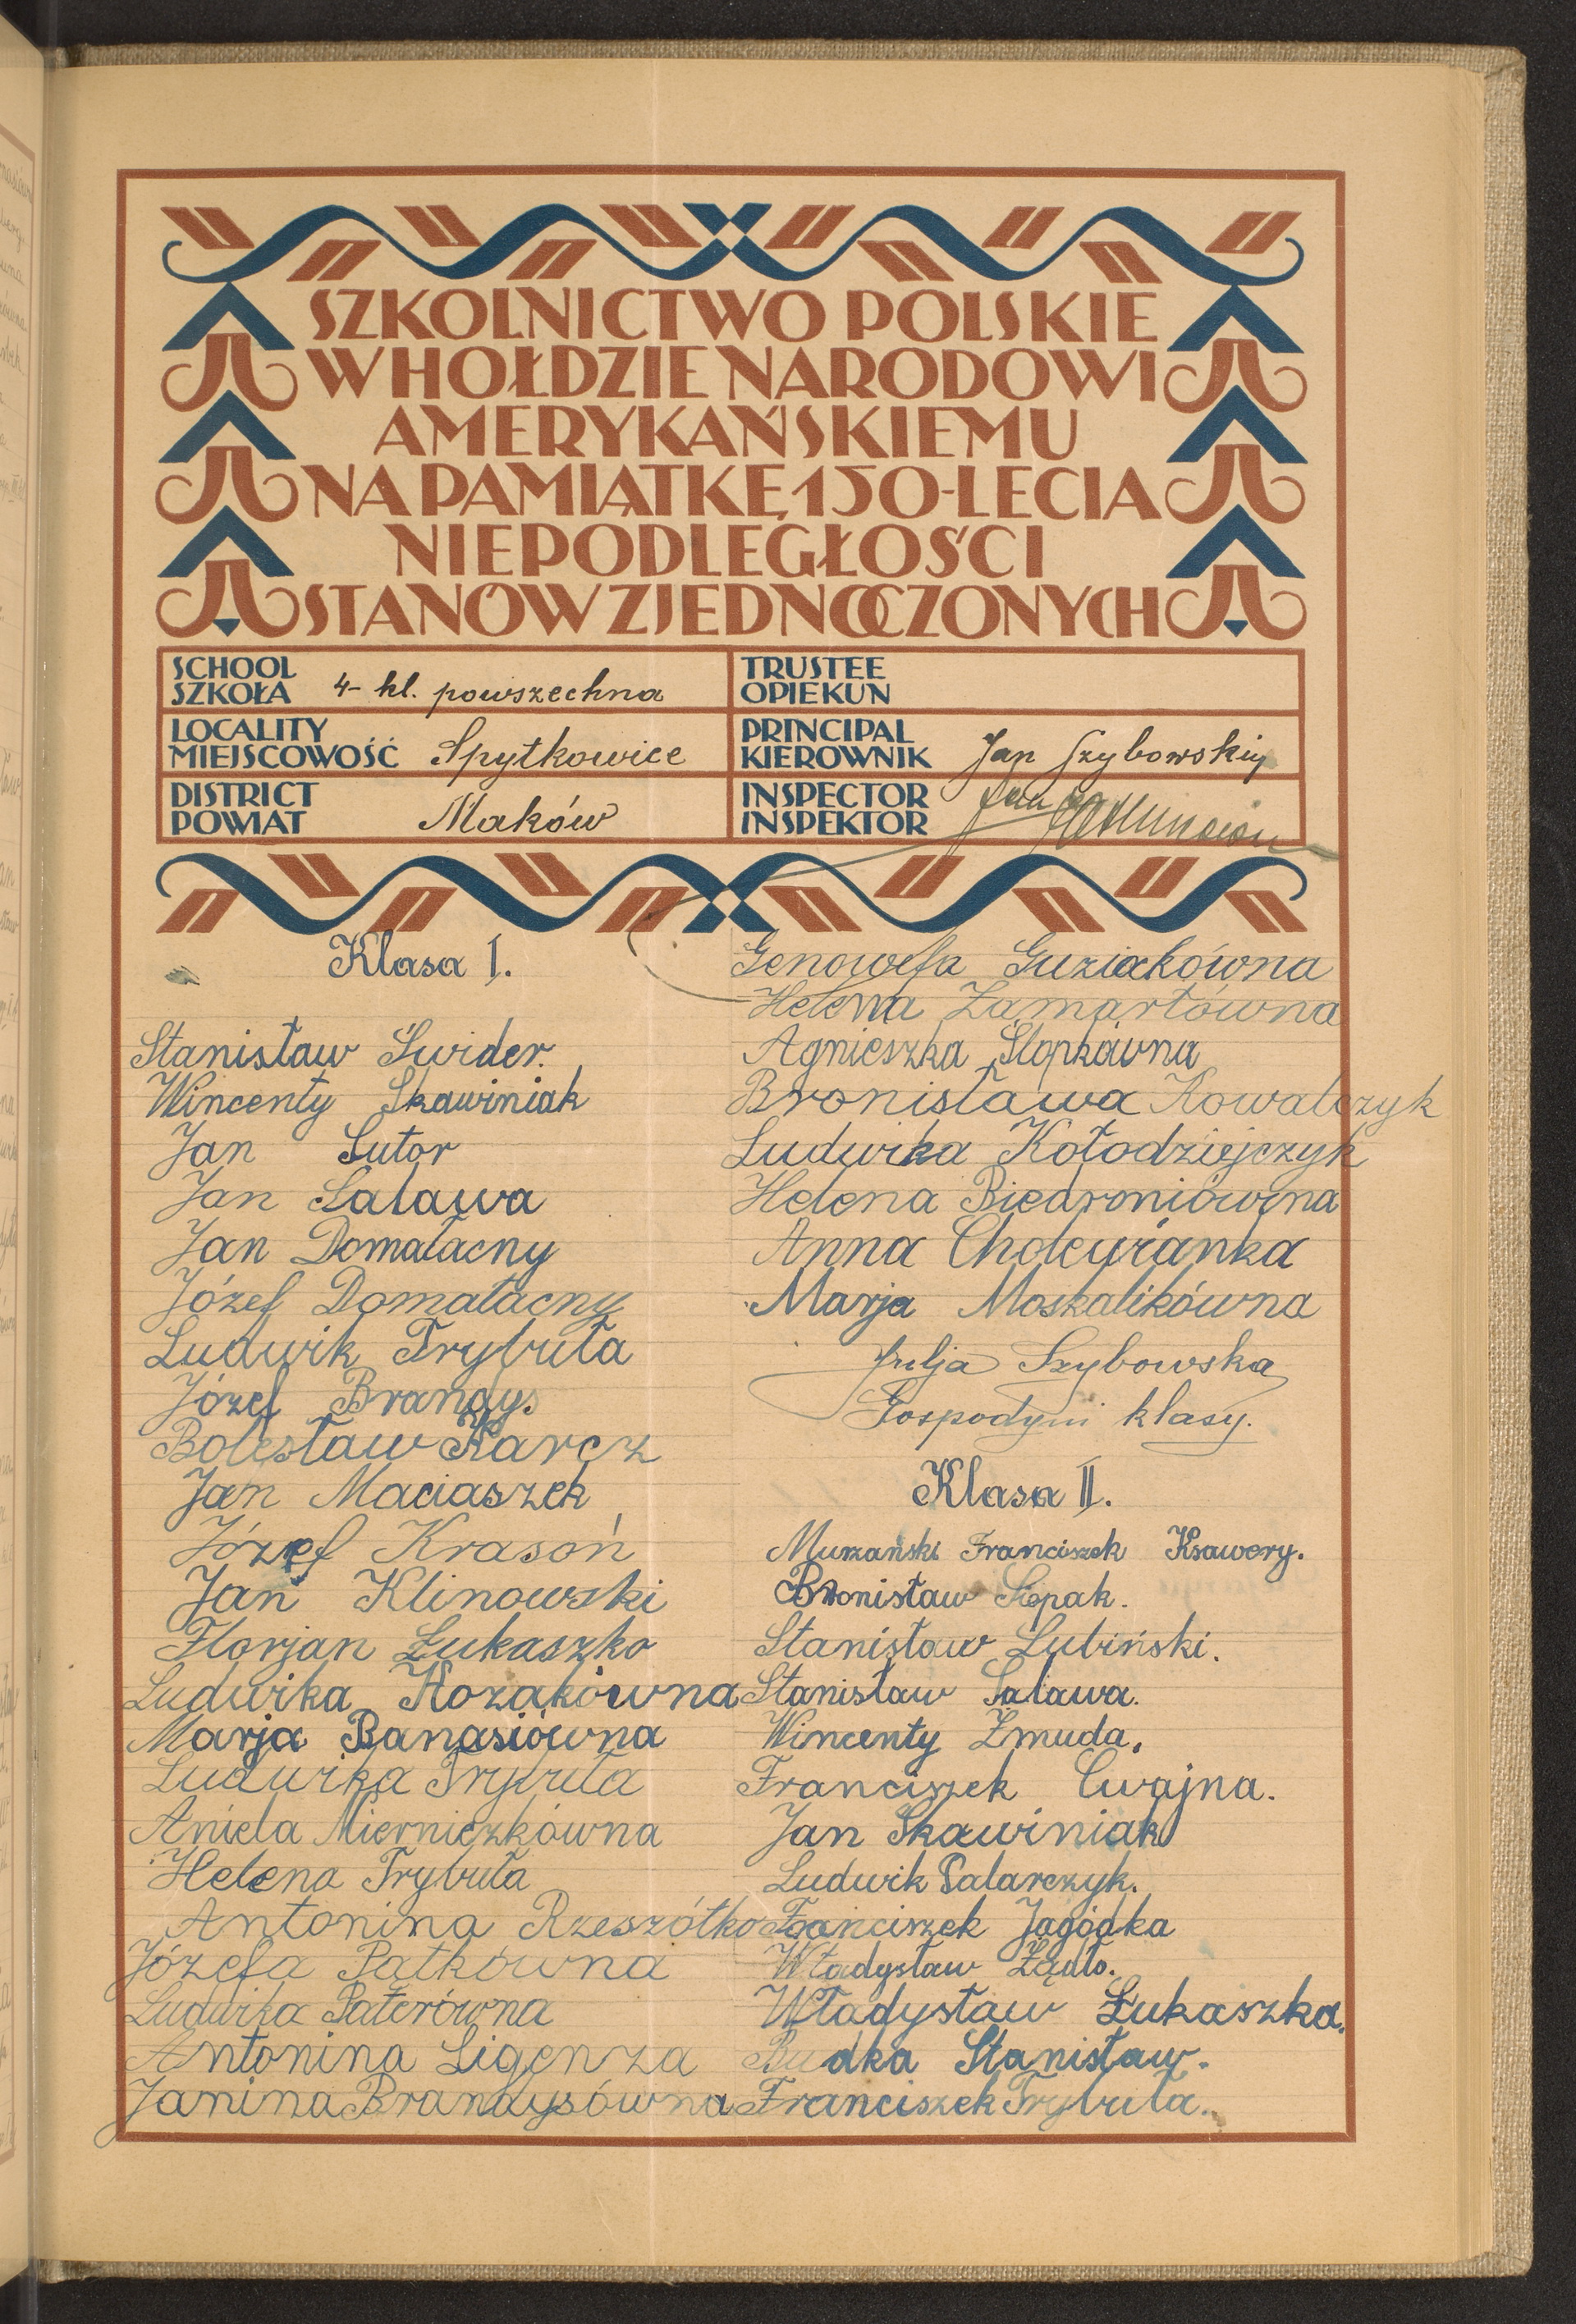 SZKOLNICTWO POLSKIE
W HOŁDZIE NARODOWI
AMERYKAŃSKIEMU
NA PAMIĄTKĘ 150-LECIA
NIEPODLEGŁOŚCI
STANÓW ZJEDNOCZONYCH
SCHOOL
SZKOŁA 4-kl. powszechna
TRUSTEE
OPIEKUN
LOCALITY
MIEJSCOWOŚĆ Spytkowice
PRINCIPAL
KIEROWNIK Jan Szybowski
DISTRICT
POWIAT Maków
INSPECTOR
INSPEKTOR Jan
Klasa I.
Stanisław Świder.
Wincenty Skawiniak
Jan Sutor
Jan Salawa
Jan Domalacny
Józef Domalacny
Ludwik Trybuła
Józef Brandys
Bolesław Karcz
Jan Maciaszek
Józef Krasoń
Jan Klinowski
Florjan Łukaszko
Ludwika Kozakówna
Marja Banasiówna
Ludwika Trybuła
Aniela Mierniczkówna
Helena Trybuła
Antonina Rzeszótko
Józefa Patkówna
Ludwika Paterówna
Antonina Ligenza
Janina Brandysówna
Genowefa Guziakówna
Helena Zamartówna
Agnieszka Słopkówna
Bronisława Kowalczyk
Ludwika Kołodziejczyk
Helena Biedroniówna
Anna
Marja Moskalikówna
Julja Szybowska
Gospodyni klasy.
Klasa II.
Murzański Franciszek Ksawery.
Bronisław Siepak.
Stanisław Lubiński.
Stanisław Salawa.
Wincenty Żmuda.
Franciszek Cwajna.
Jan Skawiniak
Ludwik Palarczyk.
Franciszek Jagódka
Władysław Żądło.
Władysław Łukaszka.
Budka Stanisław.
Franciszek Trybuła.